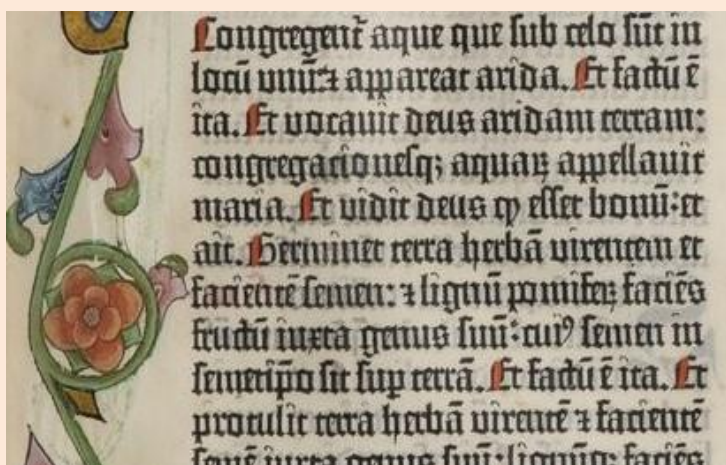 Congregent᷑ aque que sub celo sūt in
locū unū ⁊ appareat arida. Et factū ē
ita. Et vocavit deus aridam terram:
congregacionesqꝫ aquaꝝ appellavit
maria. Et vidit deus ꝙ esset bonū: et
ait. Germinet terra herbā virentem et
facientē semen: ⁊ lignū pomiferꝫ faciēs
fructū iuxta genus suū: cuiꝰ semen in
semetip̄o sit suꝑ terrā. Et factū ē ita. Et
protulit terra herbā virentē ⁊ facientē
semē iuxta genus suū: lignūqꝫ faciēs